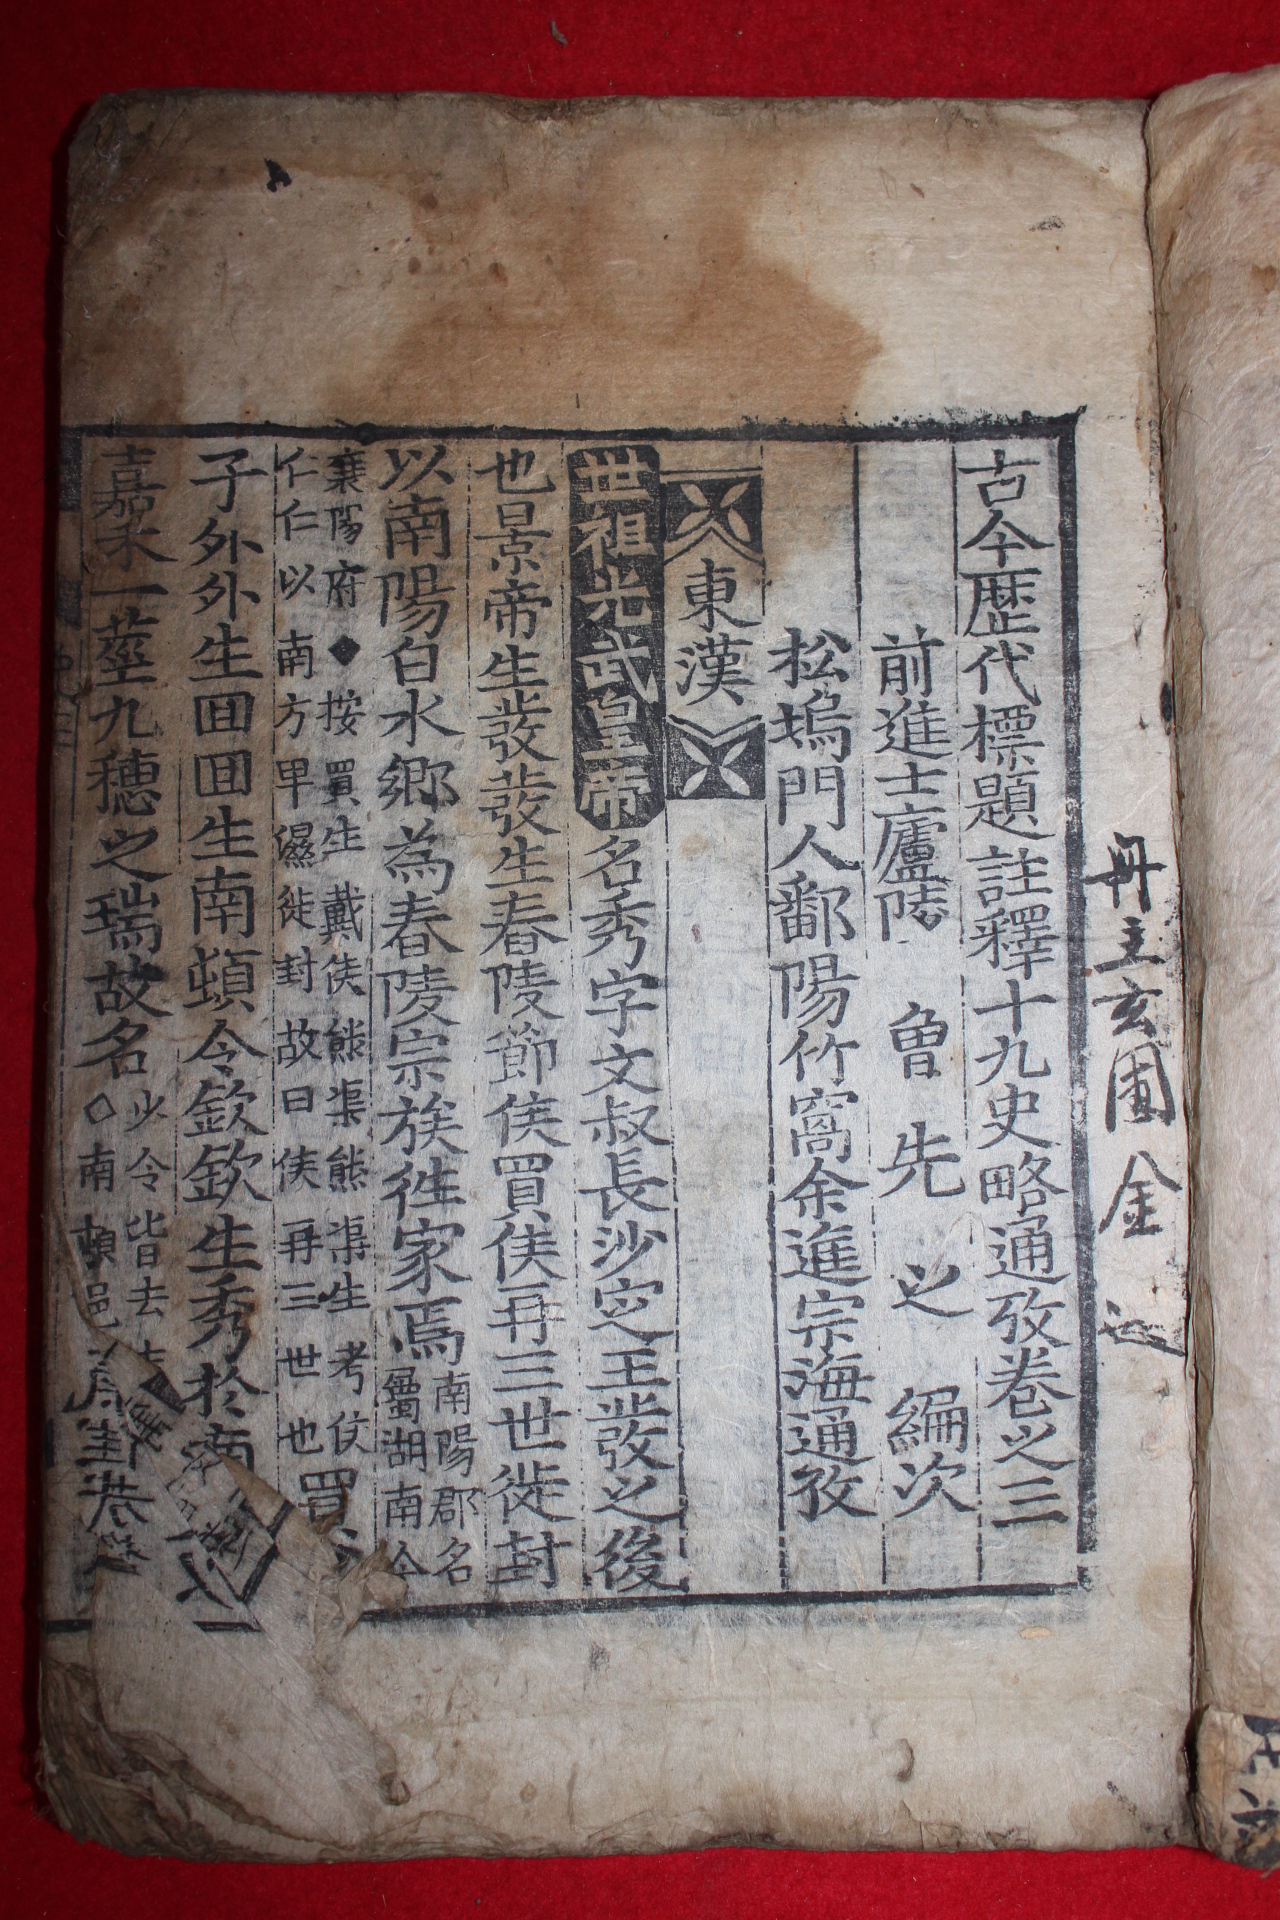 冊主玄圃金
古今歷代標題註釋十九史略通攷卷之三
前進士廬陵 曾 先 之 編次
松塢門人鄱陽竹窩余進宗海通攷
東漢
世祖光武皇帝名秀字文叔長沙定王發之後
也景帝生發發生春陵節侯買侯再三世徙封
以南陽白水鄉為春陵宗族徃家焉
南陽郡名
屬湖南今
襄陽府◆按買生戴侯熊渠熊渠生考侯
仁仁以南方卑濕徙封故曰侯再三世也買
子外外生囬囬生南頓令欽欽生秀於南
嘉禾一莖九穗之瑞故名
少令皆去
○南頓邑